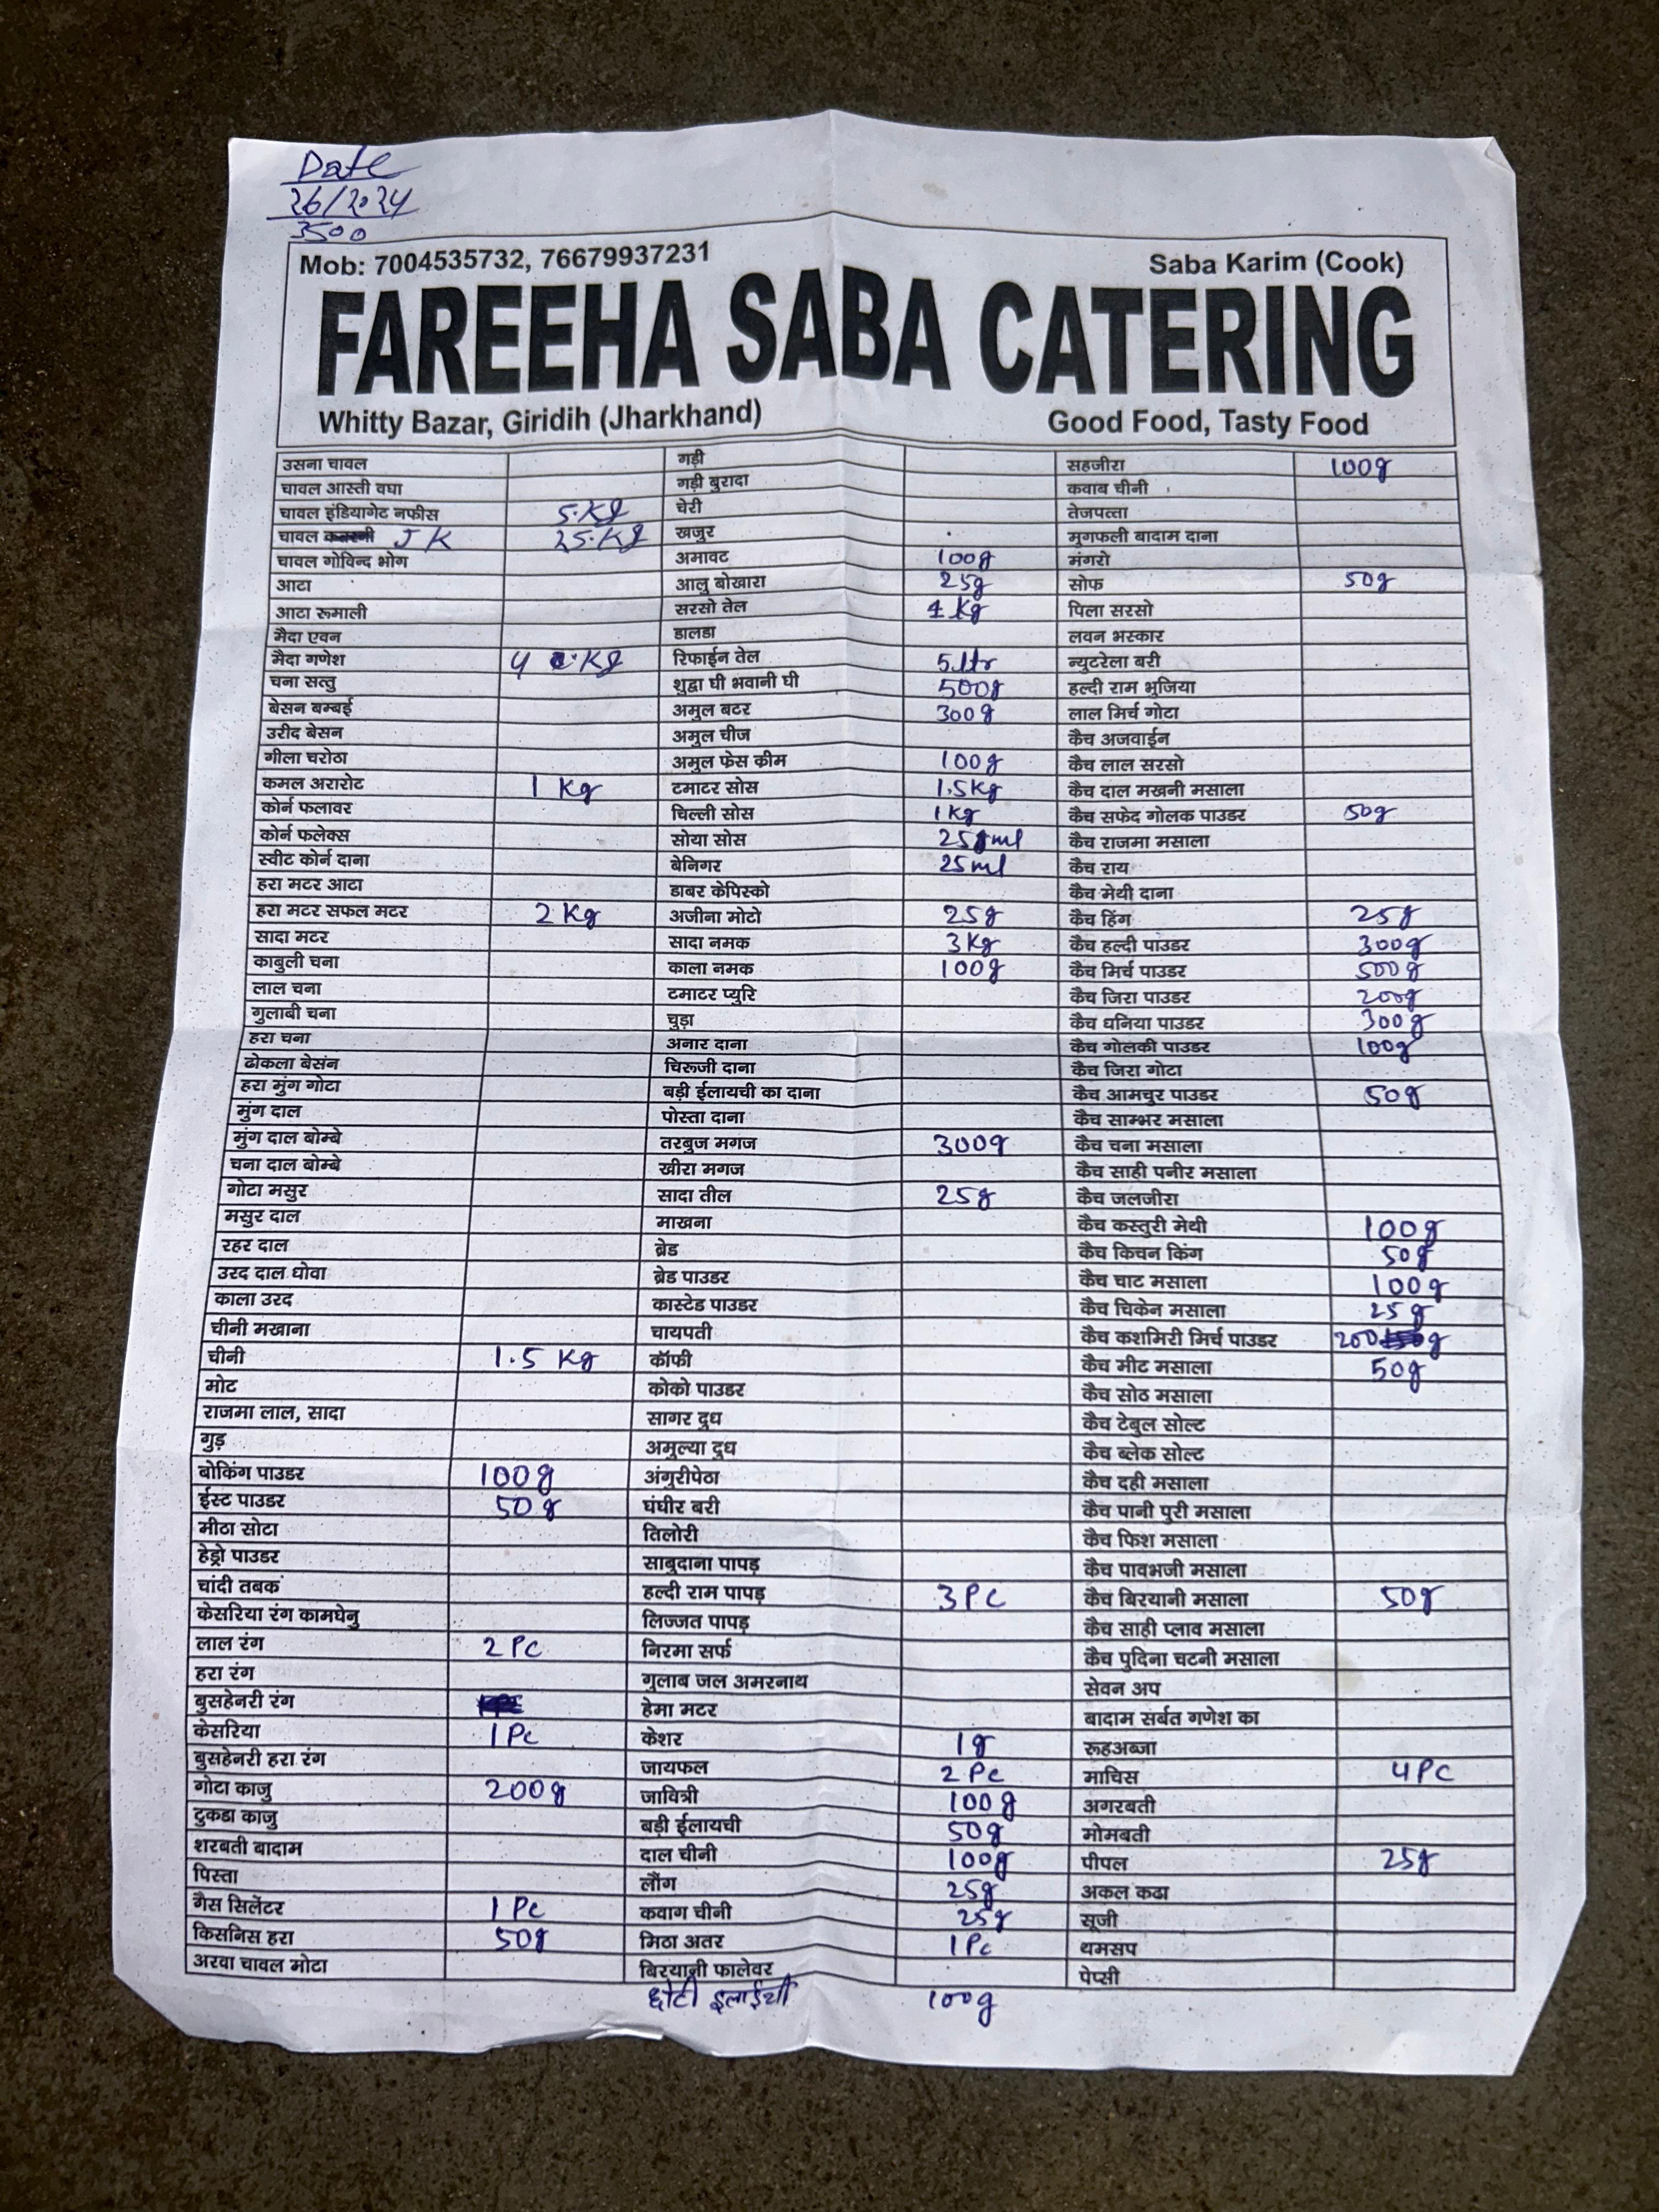 Date
26/2.24
3500
Mob: 7004535732, 76679937231 Saba Karim (Cook)
FAREEHA SABA CATERING
Whitty Bazar, Giridih (Jharkhand) Good Food, Tasty Food
उसना चावल गड़ी सहजीरा 100g
चावल आस्ती वघा गड़ी बुरादा कवाब चीनी
चावल इंडियागेट नफीस 5.Kg चेरी तेजपत्ता
चावल JK 25.Kg खजुर मुगफली बादाम दाना
चावल गोविन्द भोग अमावट 100g मंगरो
आटा आलु बोखारा 25g सोफ 50g
आटा रूमाली सरसो तेल 1 Kg पिला सरसो
मैदा एवन डालडा लवन भस्कार
मैदा गणेश 4 Kg रिफाईन तेल 5.ltr न्युटरेला बरी
चना सत्तु शुद्वा घी भवानी घी 500g हल्दी राम भुजिया
बेसन बम्बई अमुल बटर 300g लाल मिर्च गोटा
उरीद बेसन अमुल चीज कैच अजवाईन
गीला चरोठा अमुल फेस कीम 100g कैच लाल सरसो
कमल अरारोट 1 Kg टमाटर सोस 1.5Kg कैच दाल मखनी मसाला
कोर्न फलावर चिल्ली सोस 1Kg कैच सफेद गोलक पाउडर 50g
कोर्न फलेक्स सोया सोस 25ml कैच राजमा मसाला
स्वीट कोर्न दाना बेनिगर 25ml कैच राय
हरा मटर आटा डाबर केपिस्को कैच मेथी दाना
हरा मटर सफल मटर 2 Kg अजीना मोटो 25g कैच हिंग 25g
सादा मटर सादा नमक 3 Kg कैच हल्दी पाउडर 300g
काबुली चना काला नमक 100g कैच मिर्च पाउडर 500g
लाल चना टमाटर प्युरि कैच जिरा पाउडर 200g
गुलाबी चना चुड़ा कैच धनिया पाउडर 300g
हरा चना अनार दाना कैच गोलकी पाउडर 100g
ढोकला बेसंन चिरूजी दाना कैच जिरा गोटा
हरा मुंग गोटा बड़ी ईलायची का दाना कैच आमचुर पाउडर 50g
मुंग दाल पोस्ता दाना कैच साम्भर मसाला
मुंग दाल बोम्बे तरबुज मगज 300g कैच चना मसाला
चना दाल बोम्बे खीरा मगज कैच साही पनीर मसाला
गोटा मसुर सादा तील 25g कैच जलजीरा
मसुर दाल माखना कैच कस्तुरी मेथी 100g
रहर दाल ब्रेड कैच किचन किंग 50g
उरद दाल धोवा ब्रेड पाउडर कैच चाट मसाला 100g
काला उरद कास्टेड पाउडर कैच चिकेन मसाला 25g
चीनी मखाना चायपती कैच कशमिरी मिर्च पाउडर 200 g
चीनी 1.5 Kg कॉफी कैच मीट मसाला 50g
मोट कोको पाउडर कैच सोठ मसाला
राजमा लाल, सादा सागर दुध कैच टेबुल सोल्ट
गुड़ अमुल्या दुध कैच ब्लेक सोल्ट
बोकिंग पाउडर 100g अंगुरीपेठा कैच दही मसाला
ईस्ट पाउडर 50g घंघीर बरी कैच पानी पुरी मसाला
मीठा सोटा तिलोरी कैच फिश मसाला
हेड्रो पाउडर साबुदाना पापड़ कैच पावभजी मसाला
चांदी तबक हल्दी राम पापड़ 3PC कैच बिरयानी मसाला 50g
केसरिया रंग कामधेनु लिज्जत पापड़ कैच साही प्लाव मसाला
लाल रंग 2 PC निरमा सर्फ कैच पुदिना चटनी मसाला
हरा रंग गुलाब जल अमरनाथ सेवन अप
बुसहेनरी रंग हेमा मटर बादाम सर्बत गणेश का
केसरिया 1Pc केशर 1g रूहअब्जा
बुसहेनरी हरा रंग जायफल 2 Pc माचिस 4PC
गोटा काजु 200g जावित्री 100g अगरबती
टुकडा काजु बड़ी ईलायची 50g मोमबती
शरबती बादाम दाल चीनी 100g पीपल 25g
पिस्ता लौंग 25g अकल कढा
गैस सिलेंटर 1 Pc कवाग चीनी 25g सूजी
किसनिस हरा 50g मिठा अतर 1Pc थमसप
अरवा चावल मोटा बिरयानी फालेवर पेप्सी
छोटी इलाईची 100g